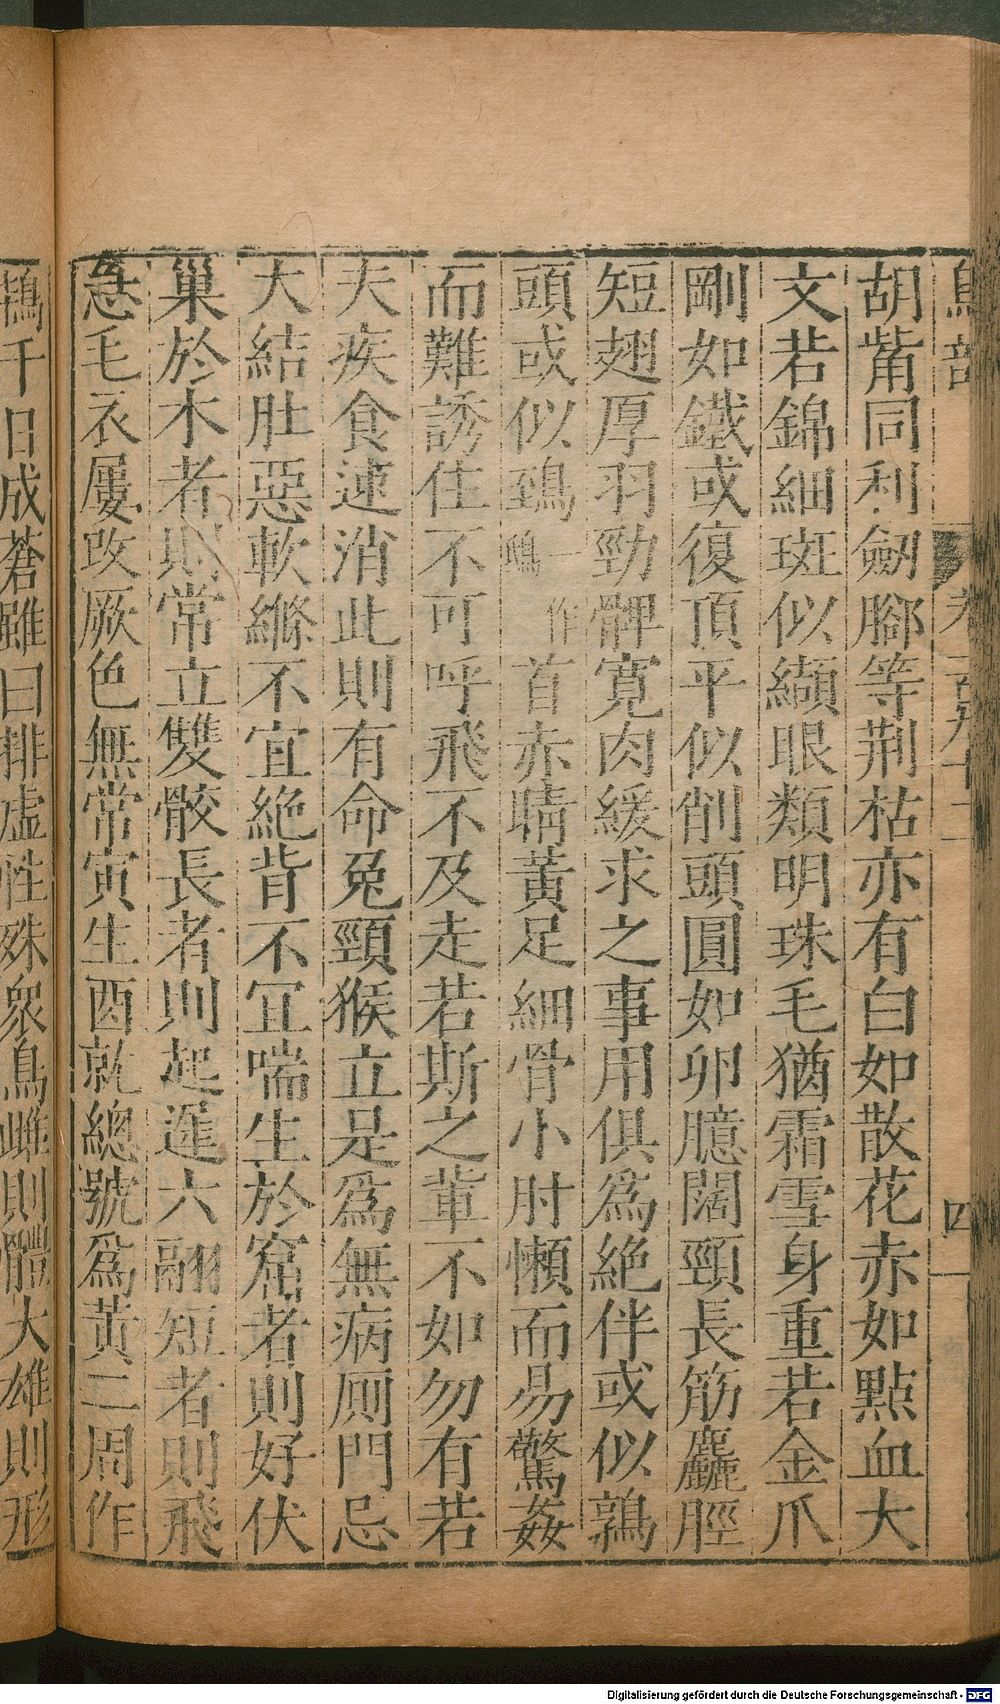 胡觜同利劒腳等荆枯亦有白如散花赤如點血大
文若錦細斑似纈眼類明珠毛猶霜雪身重若金爪
剛如鐵或復頂平似削頭圓如卵臆闊頸長筋麤脛
短翅厚羽勁髀寛肉緩求之事用俱爲絶伴或似鶉
頭或似鵄一作鴟首赤睛黃足細骨小肘懶而易驚姦
而難誘住不可呼飛不及走若斯之輩不如勿有若
夫疾食速消此則有命兔頸猴立是爲無病厠門忌
大結肚惡軟縧不宜絶背不宜喘生於窟者則好伏
巢於木者則常立雙骹長者則起遲六翮短者則飛
急毛衣屢改厥色無常寅生酉就總號爲黃二周作
鴘千日成蒼雖曰排虛性殊衆鳥雌則體大雄則形
鳥部
四
Digitalisierung gefördert durch die Deutsche Forschungsgemeinschaft - DFG